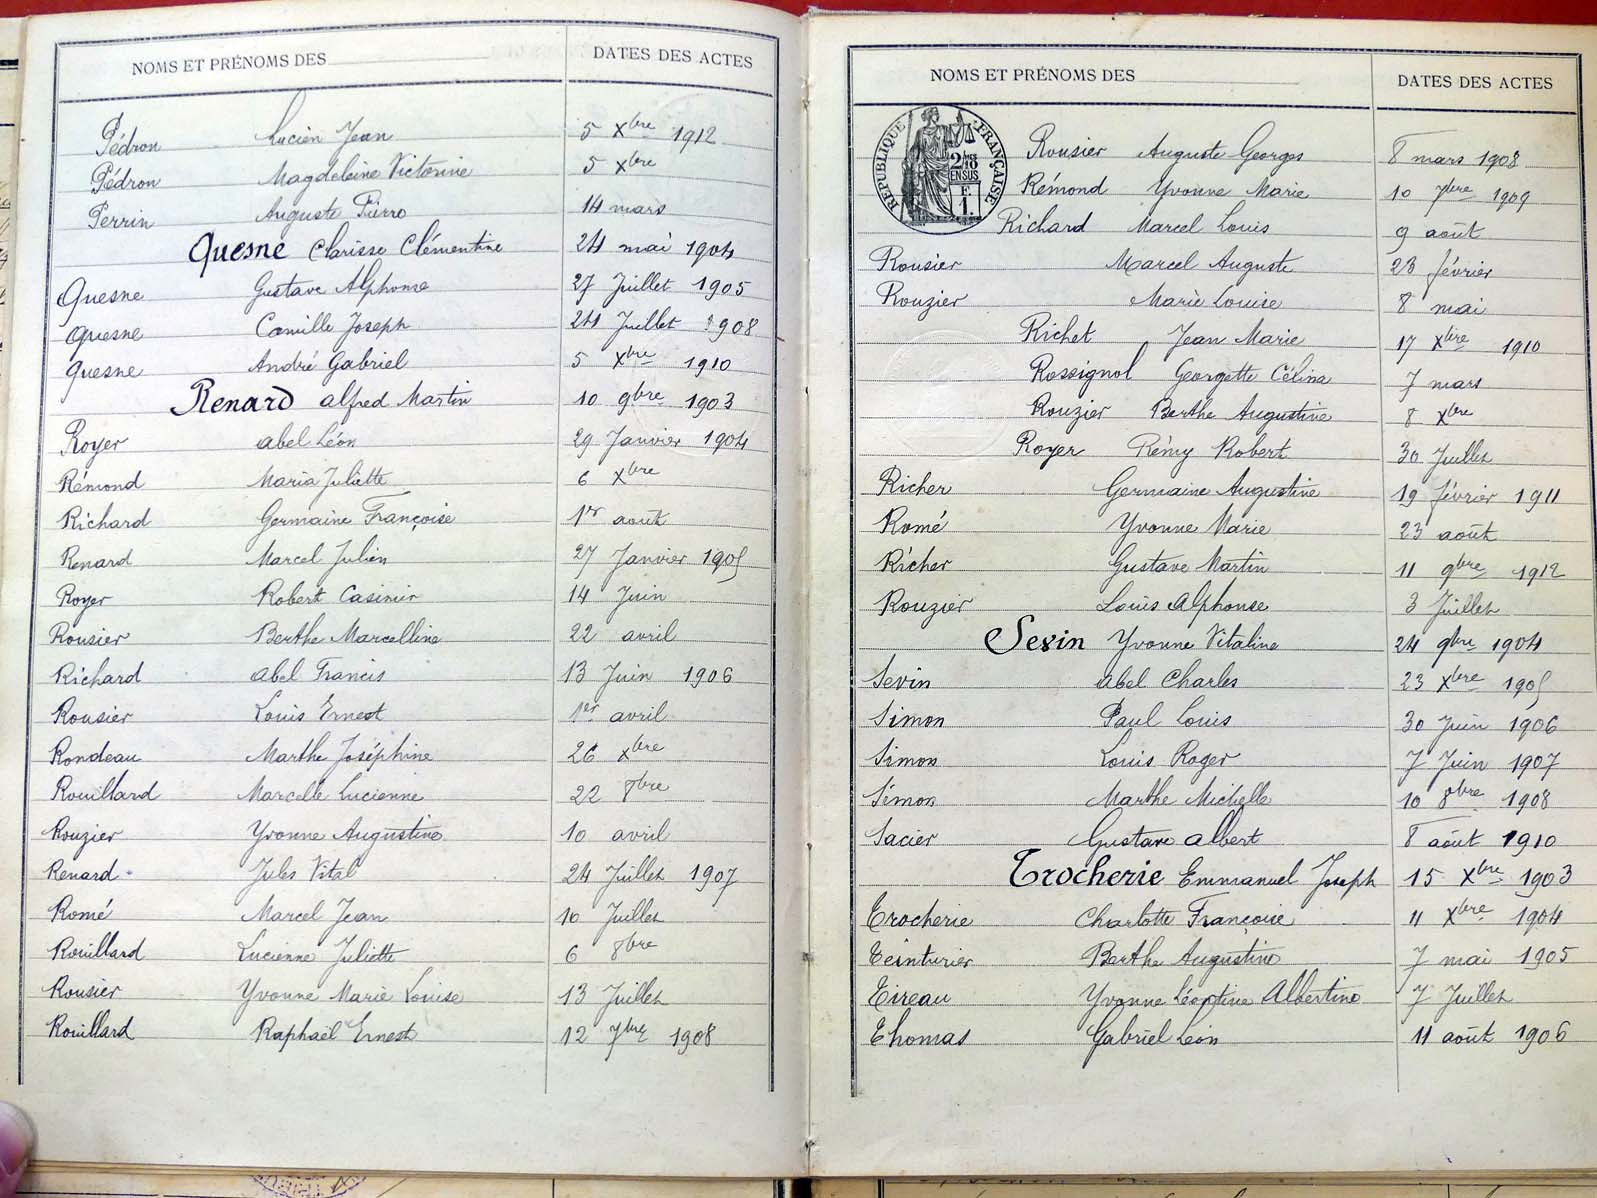 NOMS ET PRÉNOMS DES DATES DES ACTES
Pédron Lucien Jean 5 Xbre 1912
Pédron Magdeleine Victorine 5 Xbre
Perrin Auguste Pierre 14 mars
Quesne Clarisse Clémentine 24 mai 1904
Quesne Gustave Alphonse 27 Juillet 1905
Quesne Camille Joseph 24 Juillet 1908
Quesne André Gabriel 5 Xbre 1910
Renard Alfred Martin 10 9bre 1903
Royer Abel Léon 29 Janvier 1904
Rémond Maria Juliette 6 Xbre
Richard Germaine Françoise 1er août
Renard Marcel Julien 27 Janvier 1905
Royer Robert Casimir 14 Juin
Rousier Berthe Marcelline 22 avril
Richard Abel Francis 13 Juin 1906
Rousier Louis Ernest 1er avril
Rondeau Marthe Joséphine 26 Xbre
Rouillard Marcelle Lucienne 22 8bre
Rouzier Yvonne Augustine 10 avril
Renard Jules Vital 24 Juillet 1907
Romé Marcel Jean 10 Juillet
Rouillard Lucienne Juliette 6 8bre
Rousier Yvonne Marie Louise 13 Juillet
Rouillard Raphaël Ernest 12 7bre 1908
NOMS ET PRÉNOMS DES DATES DES ACTES
RÉPUBLIQUE FRANÇAISE
2/10
EN SUS
F.
1.
Rousier Auguste Georges 8 mars 1908
Rémond Yvonne Marie 10 7bre 1909
Richard Marcel Louis 9 août
Rousier Marcel Auguste 23 février
Rouzier Marie Louise 8 mai
Richet Jean Marie 17 Xbre 1910
Rossignol Georgette Célina 7 mars
Rouzier Berthe Augustine 8 Xbre
Royer Rémy Robert 30 Juillet
Richer Germaine Augustine 19 février 1911
Romé Yvonne Marie 23 août
Richer Gustave Martin 11 9bre 1912
Rouzier Louis Alphonse 3 Juillet
Sevin Yvonne Vitaline 24 9bre 1904
Sevin Abel Charles 23 Xbre 1905
Simon Paul Louis 30 Juin 1906
Simon Louis Roger 7 Juin 1907
Simon Marthe Michelle 10 8bre 1908
Sacier Gustave Albert 8 août 1910
Trocherie Emmanuel Joseph 15 Xbre 1903
Trocherie Charlotte Françoise 11 Xbre 1904
Teinturier Berthe Augustine 7 mai 1905
Tireau Yvonne Léontine Albertine 7 Juillet
Thomas Gabriel Léon 11 août 1906